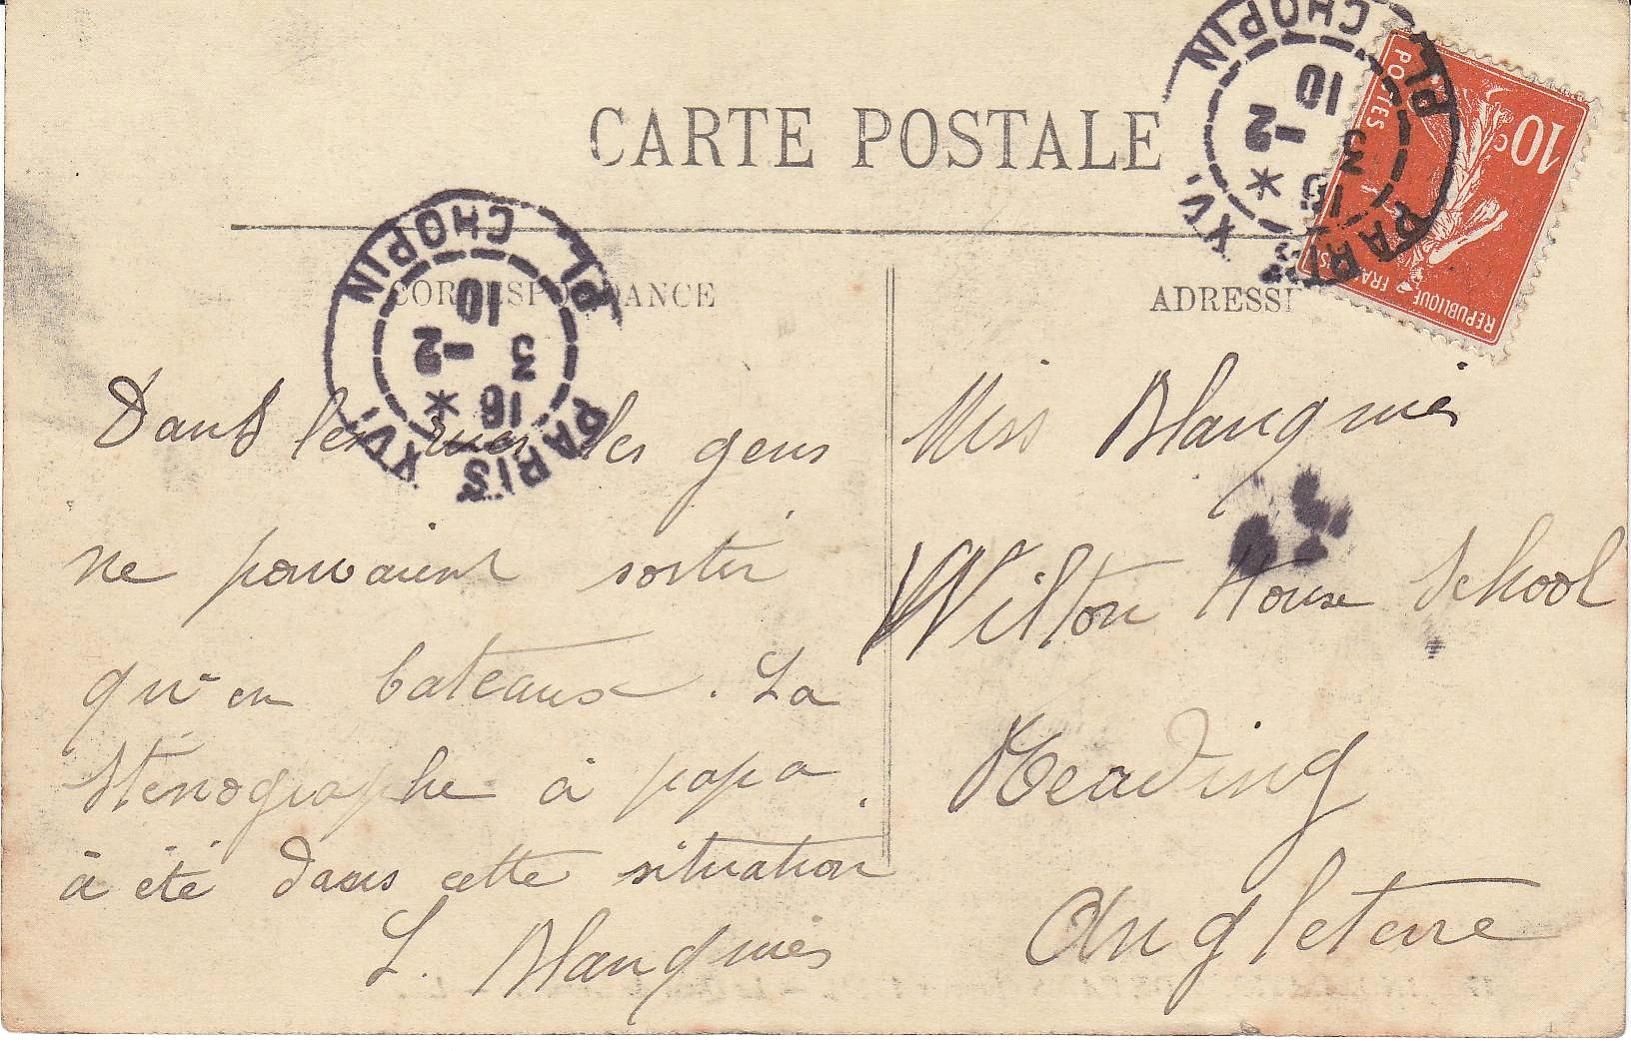 CARTE POSTALE
CORRESPONDANCE
Dans les rues les gens
ne pouvaient sortir
qu'en bateaux. La
sténographe à papa
à été dans cette situation
L.
ADRESSE
Miss
Wilton House School
Reading
Angleterre
PARIS XVI
PL. CHOPIN
16 *
3 -2
10
PARIS XVI
PL. CHOPIN
16 *
3 -2
10
10c
POSTES
REPUBLIQUE FRANÇAISE